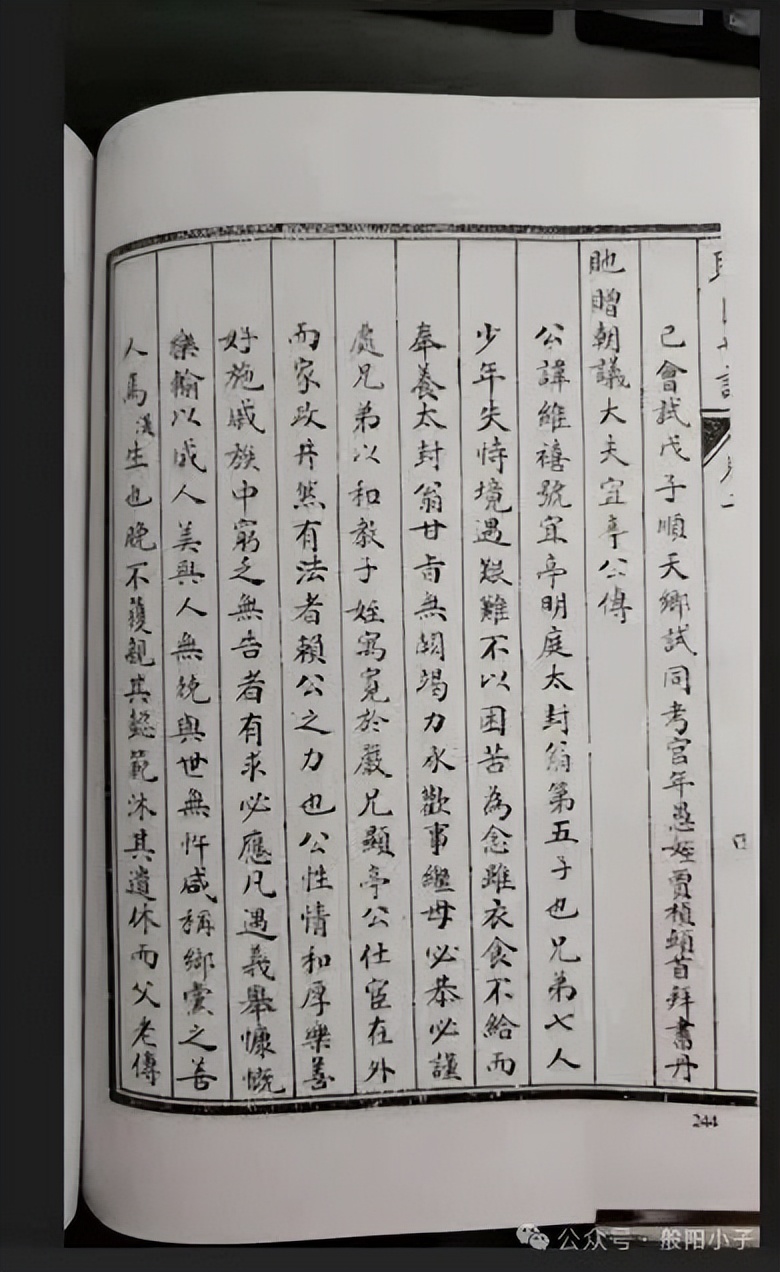 己會試戊子順天鄉試同考官年愚姪賈楨頓首拜書丹
貤贈朝議大夫宜亭公傳
公諱維禧號宜亭明庭太封翁第五子也兄弟七人
少年失恃境遇艱難不以困苦為念雖衣食不給而
奉養太封翁甘旨無闕竭力承歡事繼母必恭必謹
處兄弟以和教子姪寓寬於嚴兄顯亭公仕宦在外
而家政井然有法者賴公之力也公性情和厚樂善
好施戚族中窮乏無告者有求必應凡遇義舉慷慨
樂輸以成人美與人無競與世無忤咸稱鄉黨之善
人焉漢生也晚不獲親其懿範沐其遺休而父老傳
244
公众号·般阳小子